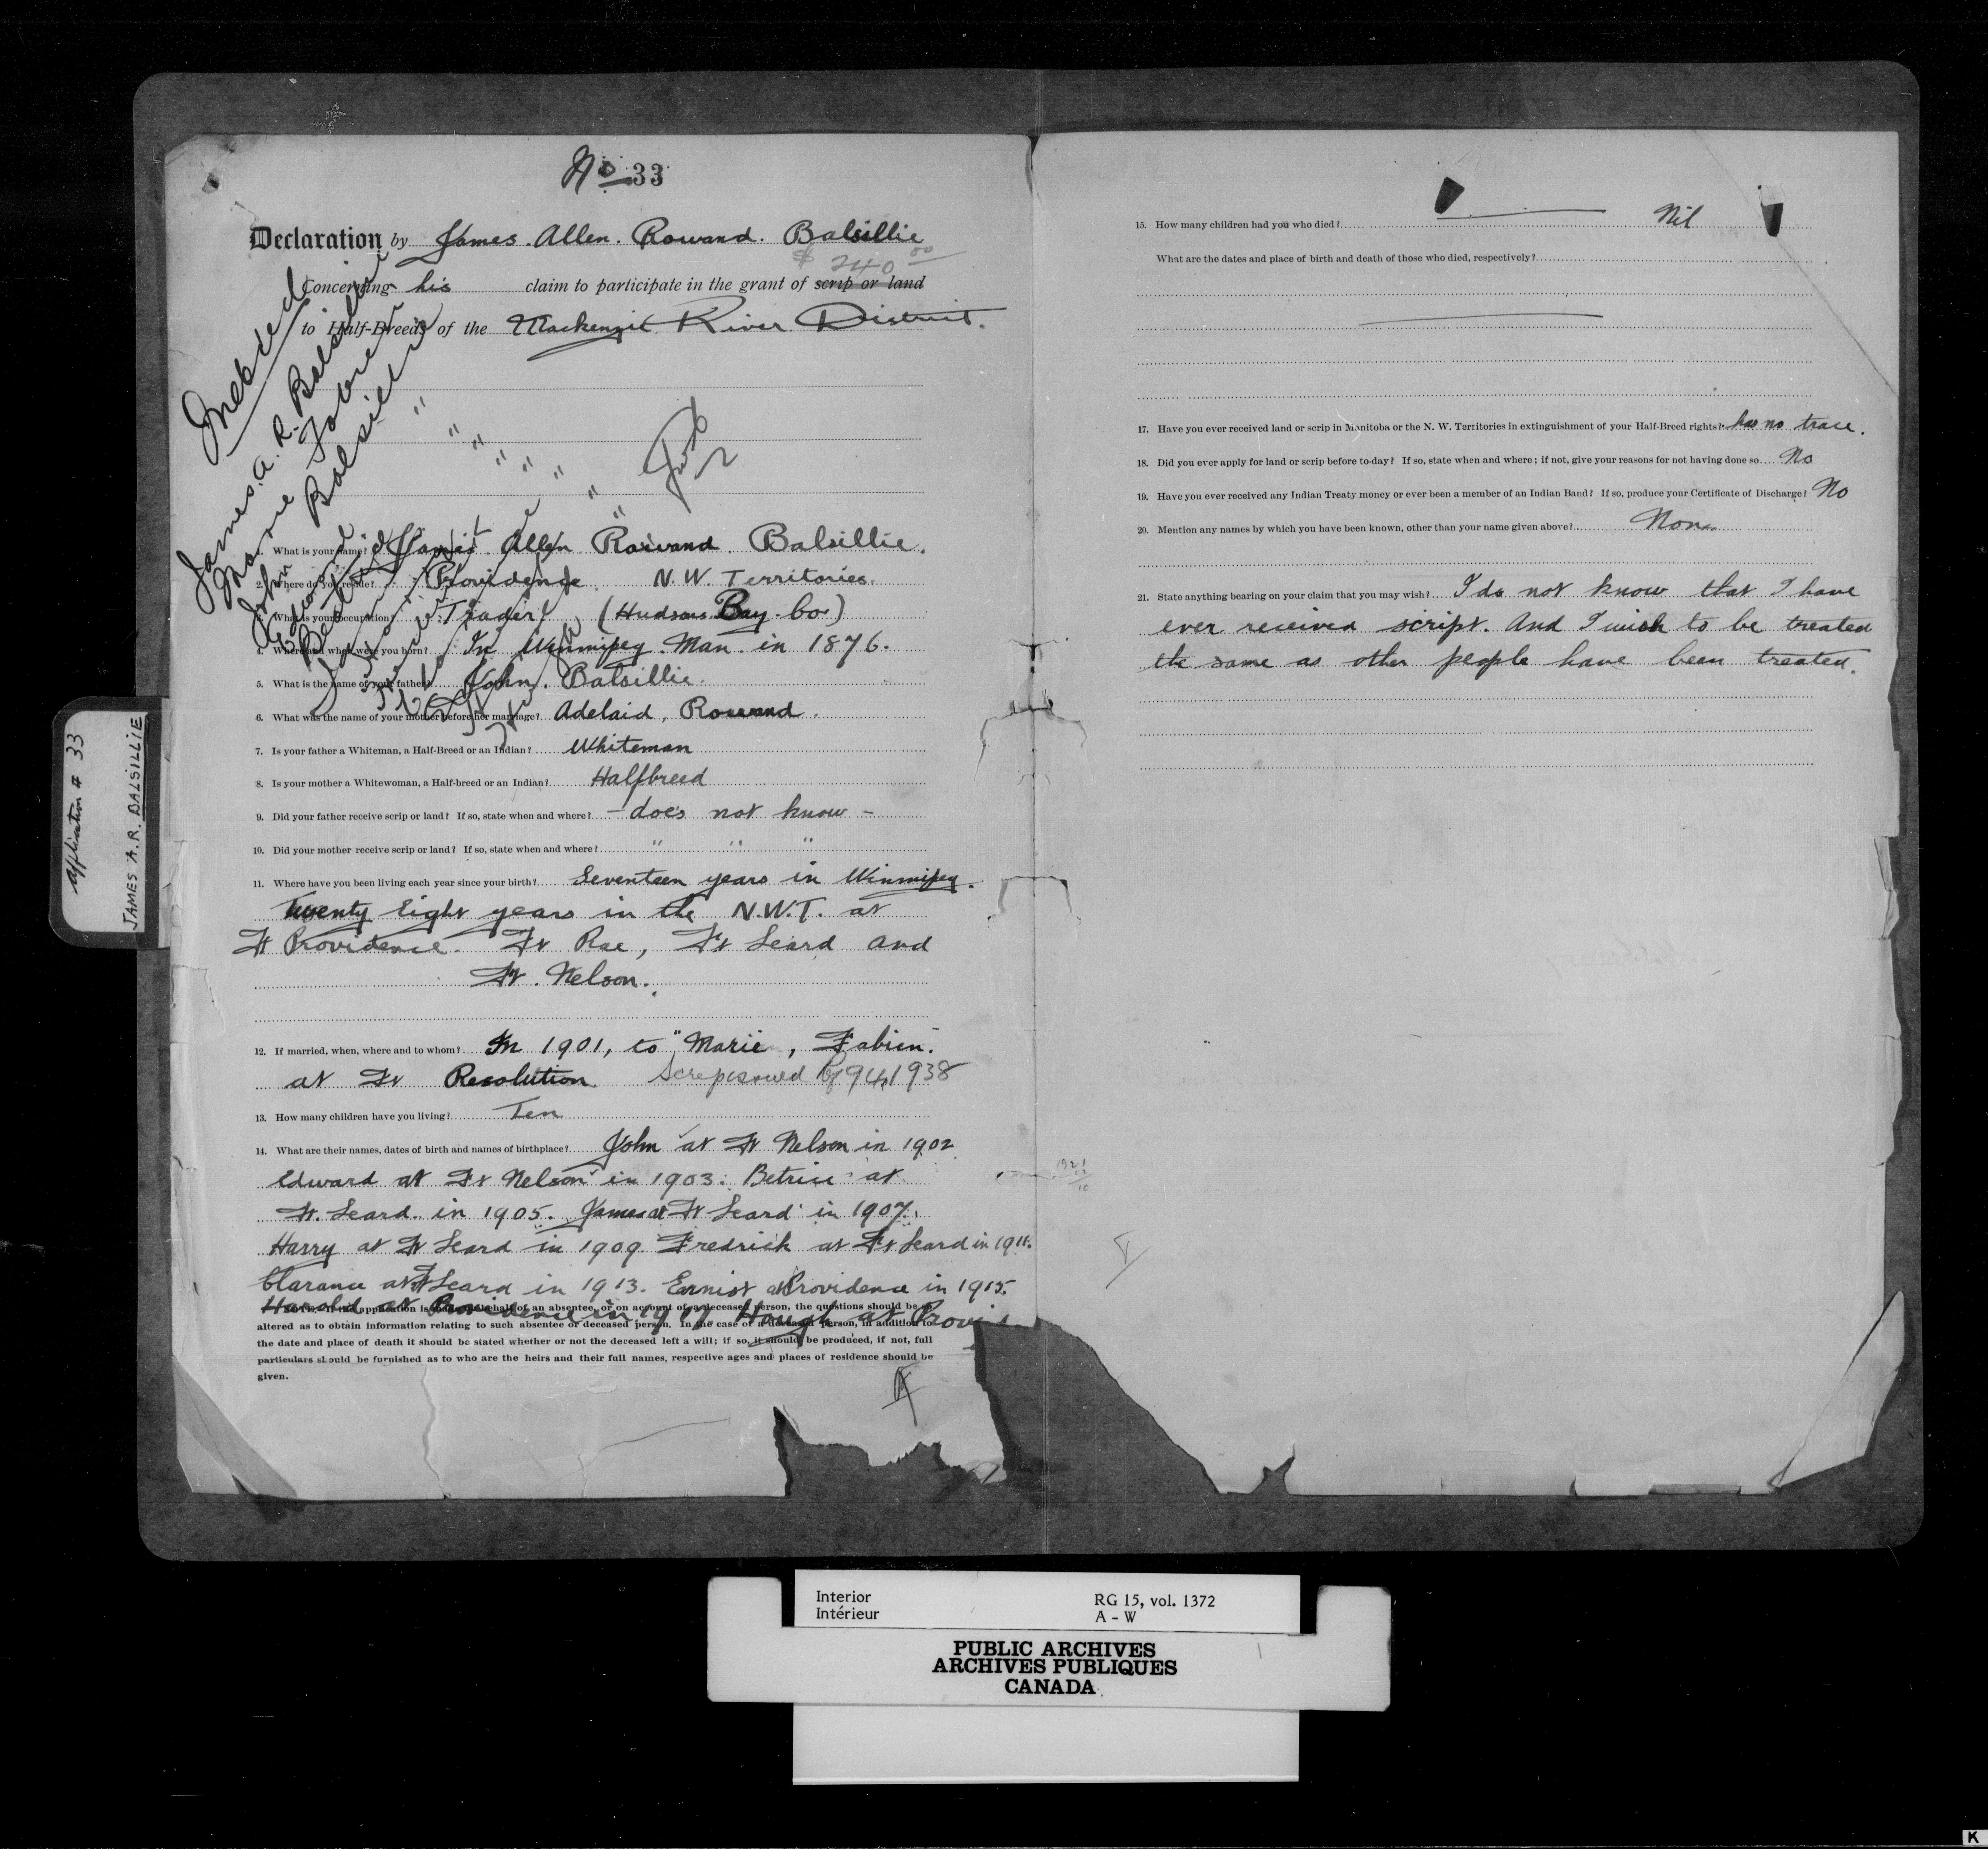 No 33
Declaration by James. Allen. Rowand. Balsillie
$ 240 00
Concerning his claim to participate in the grant of scrip or land
to Half-Breeds of the Mackenzie River District.
Indexed
James. A. R. Balsillie
Marie Fabien
John Balsillie
1. What is your name? James Allen Rowand Balsillie.
2. Where do you reside? Providence N.W. Territories.
3. What is your occupation? Trader (Hudsons Bay Co)
4. Where and when were you born? In Winnipeg. Man. in 1876.
5. What is the name of your father? John. Balsillie.
6. What was the name of your mother before her marriage? Adelaid, Rowand.
7. Is your father a Whiteman, a Half-Breed or an Indian? Whiteman
8. Is your mother a Whitewoman, a Half-breed or an Indian? Halfbreed
9. Did your father receive scrip or land? If so, state when and where? - does not know -
10. Did your mother receive scrip or land? If so, state when and where? " " "
11. Where have you been living each year since your birth? Seventeen years in Winnipeg.
Twenty Eight years in the N.W.T. at
Ft Providence. Ft Rae, Ft Leard and
Ft. Nelson.
12. If married, when, where and to whom? In 1901, to "Marie, Fabien.
at Ft Resolution
13. How many children have you living? Ten
14. What are their names, dates of birth and names of birthplace? John at Ft Nelson in 1902
Edward at Ft Nelson in 1903. Betrice at
Ft. Leard. in 1905. James at Ft Leard in 1907.
Harry at Ft Leard in 1909 Fredrick at Ft Leard in 1911.
Clarance at Ft Leard in 1913. Ernist at Providence in 1915.
Harold at Providence in 1917 Hough at Provi
application is behalf of an absentee, or on account of a deceased person, the questions should be so
altered as to obtain information relating to such absentee or deceased person. In the case of a deceased person, in addition to
the date and place of death it should be stated whether or not the deceased left a will; if so, it should be produced, if not, full
particulars should be furnished as to who are the heirs and their full names, respective ages and places of residence should be
given.
15. How many children had you who died? Nil
What are the dates and place of birth and death of those who died, respectively?
17. Have you ever received land or scrip in Manitoba or the N. W. Territories in extinguishment of your Half-Breed rights? has no trace.
18. Did you ever apply for land or scrip before to-day? If so, state when and where; if not, give your reasons for not having done so No
19. Have you ever received any Indian Treaty money or ever been a member of an Indian Band? If so, produce your Certificate of Discharge? No
20. Mention any names by which you have been known, other than your name given above? None
21. State anything bearing on your claim that you may wish? I do not know that I have
ever received script. And I wish to be treated
the same as other people have been treated.
Application # 33
JAMES A.R. BALSILLIE
Interior RG 15, vol. 1372
Intérieur A - W
PUBLIC ARCHIVES
ARCHIVES PUBLIQUES
CANADA
K